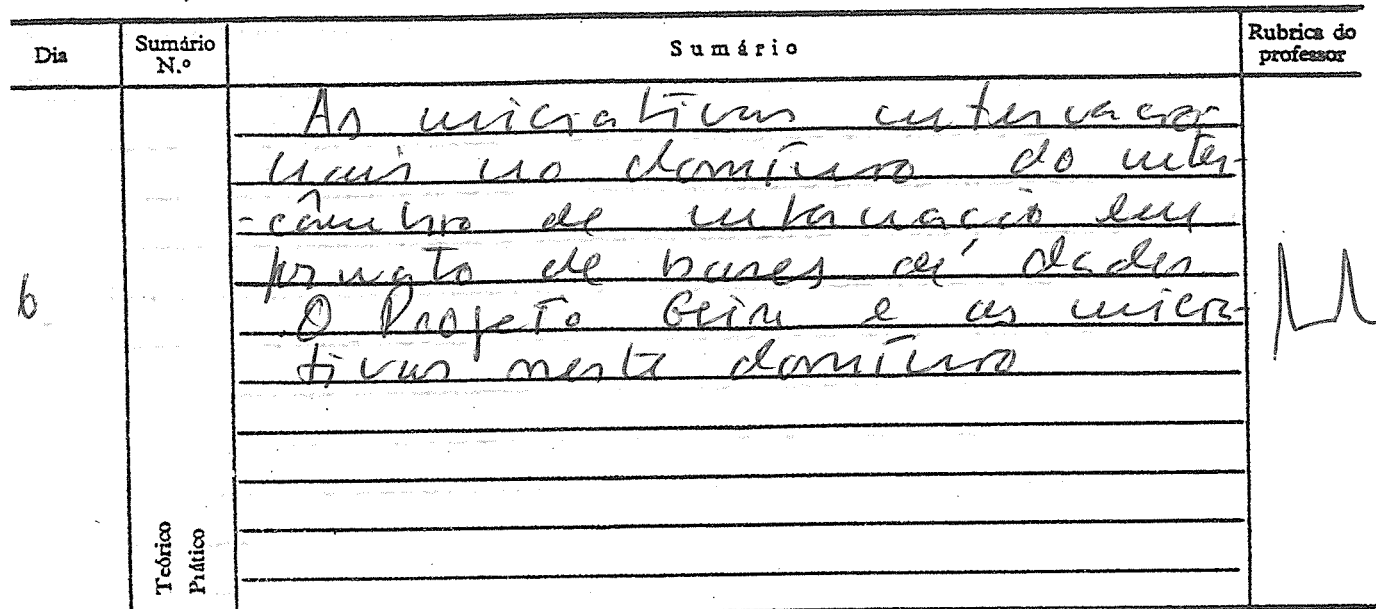 Dia
Sumário N.º
Sumário
Rubrica do professor
6
As iniciativas internacio-
nais no domínio do inter-
-câmbio de informação em
formato de bases de dados
O Projeto e as inicia-
tivas neste domínio
Teórico
Prático